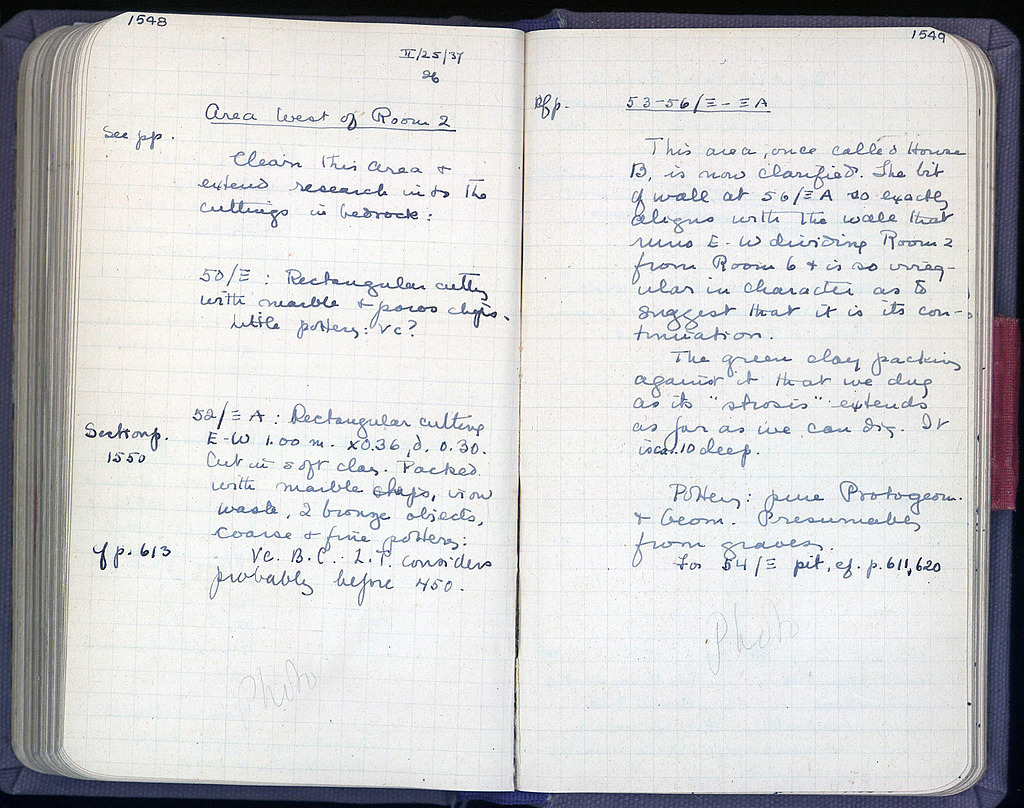 1548
II/25/37
26
Area West of Room 2
See pp.
Clean this area &
extend research into the
cuttings in bedrock:
50/Ξ : Rectangular cutting
with marble & poros chips.
Little pottery: Vc?
52/Ξ A : Rectangular cutting
Section p.
1550
E-W 1.00 m. x 0.36, d. 0.30.
Cut in soft clay. Packed
with marble chips, iron
waste, 2 bronze objects,
coarse & fine pottery:
cf p. 613
Vc. B.C. L.T. considers
probably before 450.
Photo
1549
cf p.
53-56/Ξ - Ξ A
This area, once called House
B, is now clarified. The bit
of wall at 56/Ξ A so exactly
aligns with the wall that
runs E-W dividing Room 2
from Room 6 & is so irreg-
ular in character as to
suggest that it is its con-
tinuation.
The green clay packing
against it that we dug
as its "strosis" extends
as far as we can dig. It
is ca. .10 deep.
Pottery: pure Protogeom.
& Geom. Presumably
from graves.
For 54/Ξ pit, cf. p. 611, 620
Photo